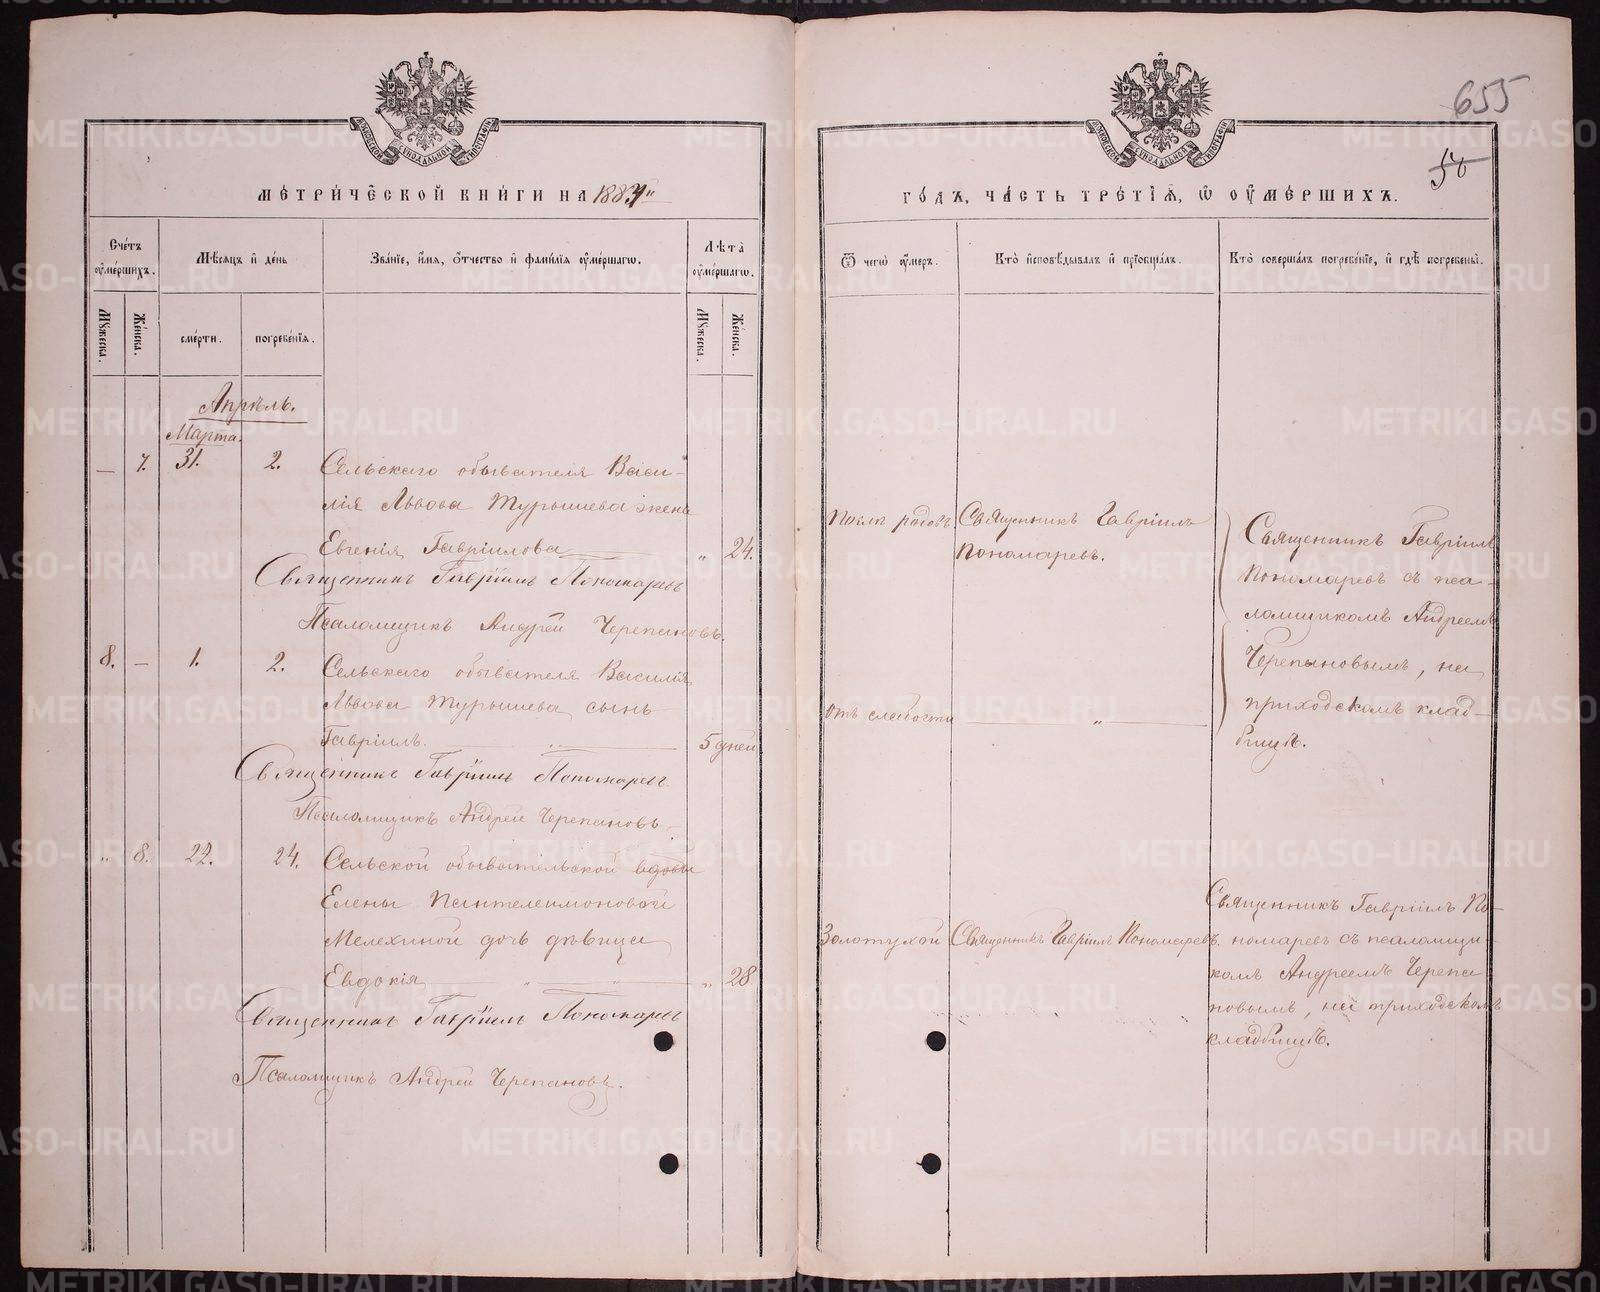 655
58
МОСКОВСКОЙ СѴНОДАЛЬНОЙ ТИПОГРАФІИ
МОСКОВСКОЙ СѴНОДАЛЬНОЙ ТИПОГРАФІИ
МЕТРИЧЕСКОЙ КНИГИ НА 1884
ГОДЪ, ЧАСТЬ ТРЕТІЯ, Ѡ ОУМЕРШИХЪ.
Счетъ оумершихъ.
Мѣсяцъ и день
Званіе, имя, отчество и фамилія оумершагѡ.
Лѣта оумершагѡ.
Ѿ чегѡ оумеръ.
Кто исповѣдывалъ и пріобщалъ.
Кто совершалъ погребеніе, и гдѣ погребены.
Мужеска.
Женска.
смерти.
погребенія.
Мужеска.
Женска.
Апрѣль.
Марта.
— 7. 31. 2. Сельскаго обывателя Васи-
лія Львова Турышева жена
Евгенія Гавріилова „ 24.
Послѣ родовъ
Священникъ Гавріилъ
Пономаревъ.
Священникъ Гавріилъ Пономаревъ
Псаломщикъ Андрей Черепановъ.
8. — 1. 2. Сельскаго обывателя Василія
Львова Турышева сынъ
Гавріилъ. 5 дней
Отъ слабости „
Священникъ Гавріилъ
Пономаревъ съ пса-
ломщикомъ Андреемъ
Черепановымъ, на
приходскомъ клад-
бищѣ.
Священникъ Гавріилъ Пономаревъ
Псаломщикъ Андрей Черепановъ.
„ 8. 22. 24. Сельской обывательской вдовы
Елены Пантелеимоновой
Мелехиной дочь дѣвица
Евдокія „ 28
Золотухой
Священникъ Гавріилъ Пономаревъ.
Священникъ Гавріилъ По-
номаревъ съ псаломщи-
комъ Андреемъ Черепа
новымъ, на приходскомъ
кладбищѣ.
Священникъ Гавріилъ Пономаревъ
Псаломщикъ Андрей Черепановъ.
METRIKI.GASO-URAL.RU